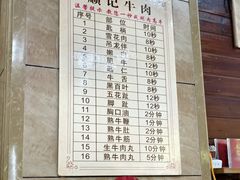 顺记牛肉
温馨提示
序号 部位 时间
1 匙柄 10秒
2 雪花肉 8秒
3 吊龙伴 10秒
4 嫩肉 8秒
5 12秒
6 仁 8秒
7 牛舌 8秒
8 黑百叶 8秒
9 五花趾 12秒
10 脚趾 12秒
11 胸口油 2分钟
12 熟牛鞭 1分钟
13 熟牛肚 2分钟
14 熟牛筋 2分钟
15 生牛肉丸 10分钟
16 熟牛肉丸 5分钟